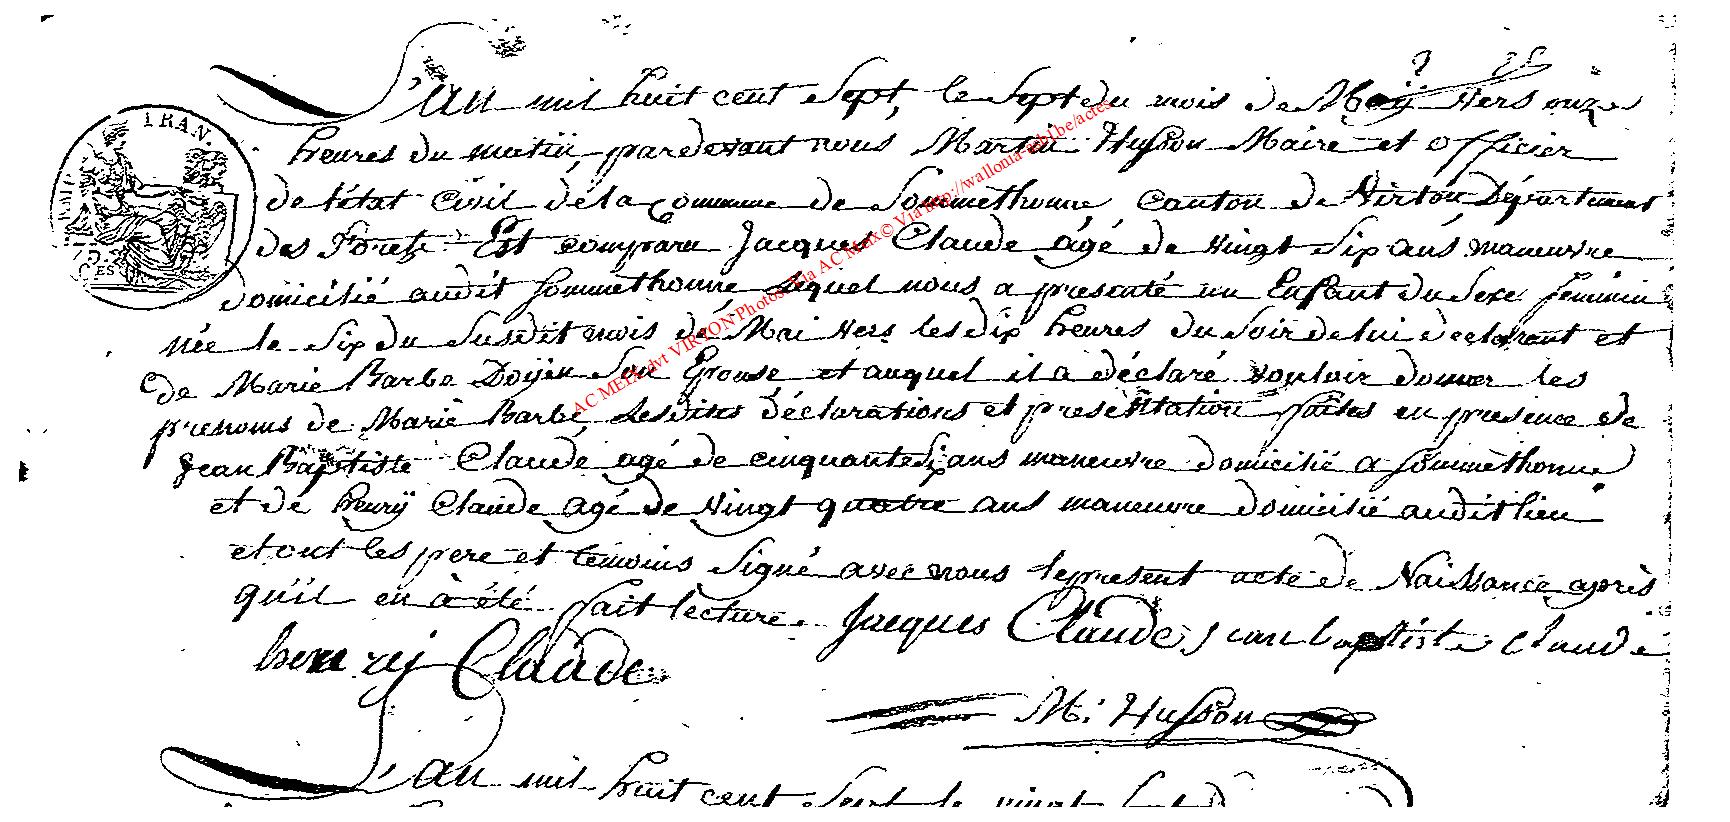 ? 25
L'an mil huit cent Sept, le Sept du mois de May vers onze
heures du matin, pardevant nous Martin Husson Maire et officier
de l'état Civil de la Commune de Sommethonne, Canton de Virton, Département
des Forets. Est comparu Jacques Claude âgé de vingt Six ans maneuvre
domicilié audit Sommethonne, Lequel nous a presenté un Enfant du Sexe feminin
née le Six du Susdit mois de Mai vers les dix heures du Soir de lui declarant et
de Marie Barbe Doÿen Son Epouse et auquel il a déclaré vouloir donner les
prenoms de Marie Barbe, Lesdites déclarations et presentation faites en presence de
Jean Baptiste Claude agé de cinquante Six ans maneuvre domicilié a Sommethonne
et de henrÿ Claude agé de vingt quatre ans maneuvre domicilié audit lieu
et ont les pere et temoins Signé avec nous le present acte de Naissance après
qu'il en à été fait lecture. Jacques Claude, jean baptiste claude
henrÿ Claude
M: Husson
L'an mil huit cent Sept le vingt
IRAN.
AC MEIX dvt VIRTON Photos via AC Meix© Via http://wallonia-asbl.be/actes